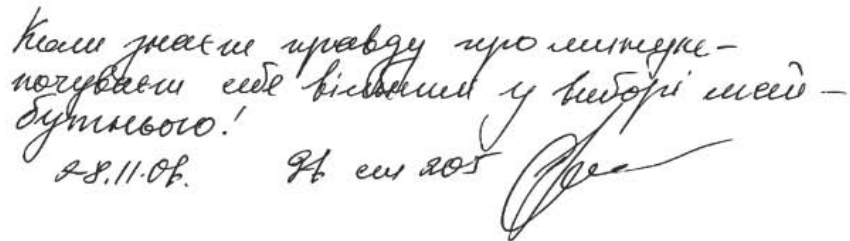 Коли знаєш правду про минуле –
почуваєш себе вільним у виборі май–
бутнього!
28.11.06.